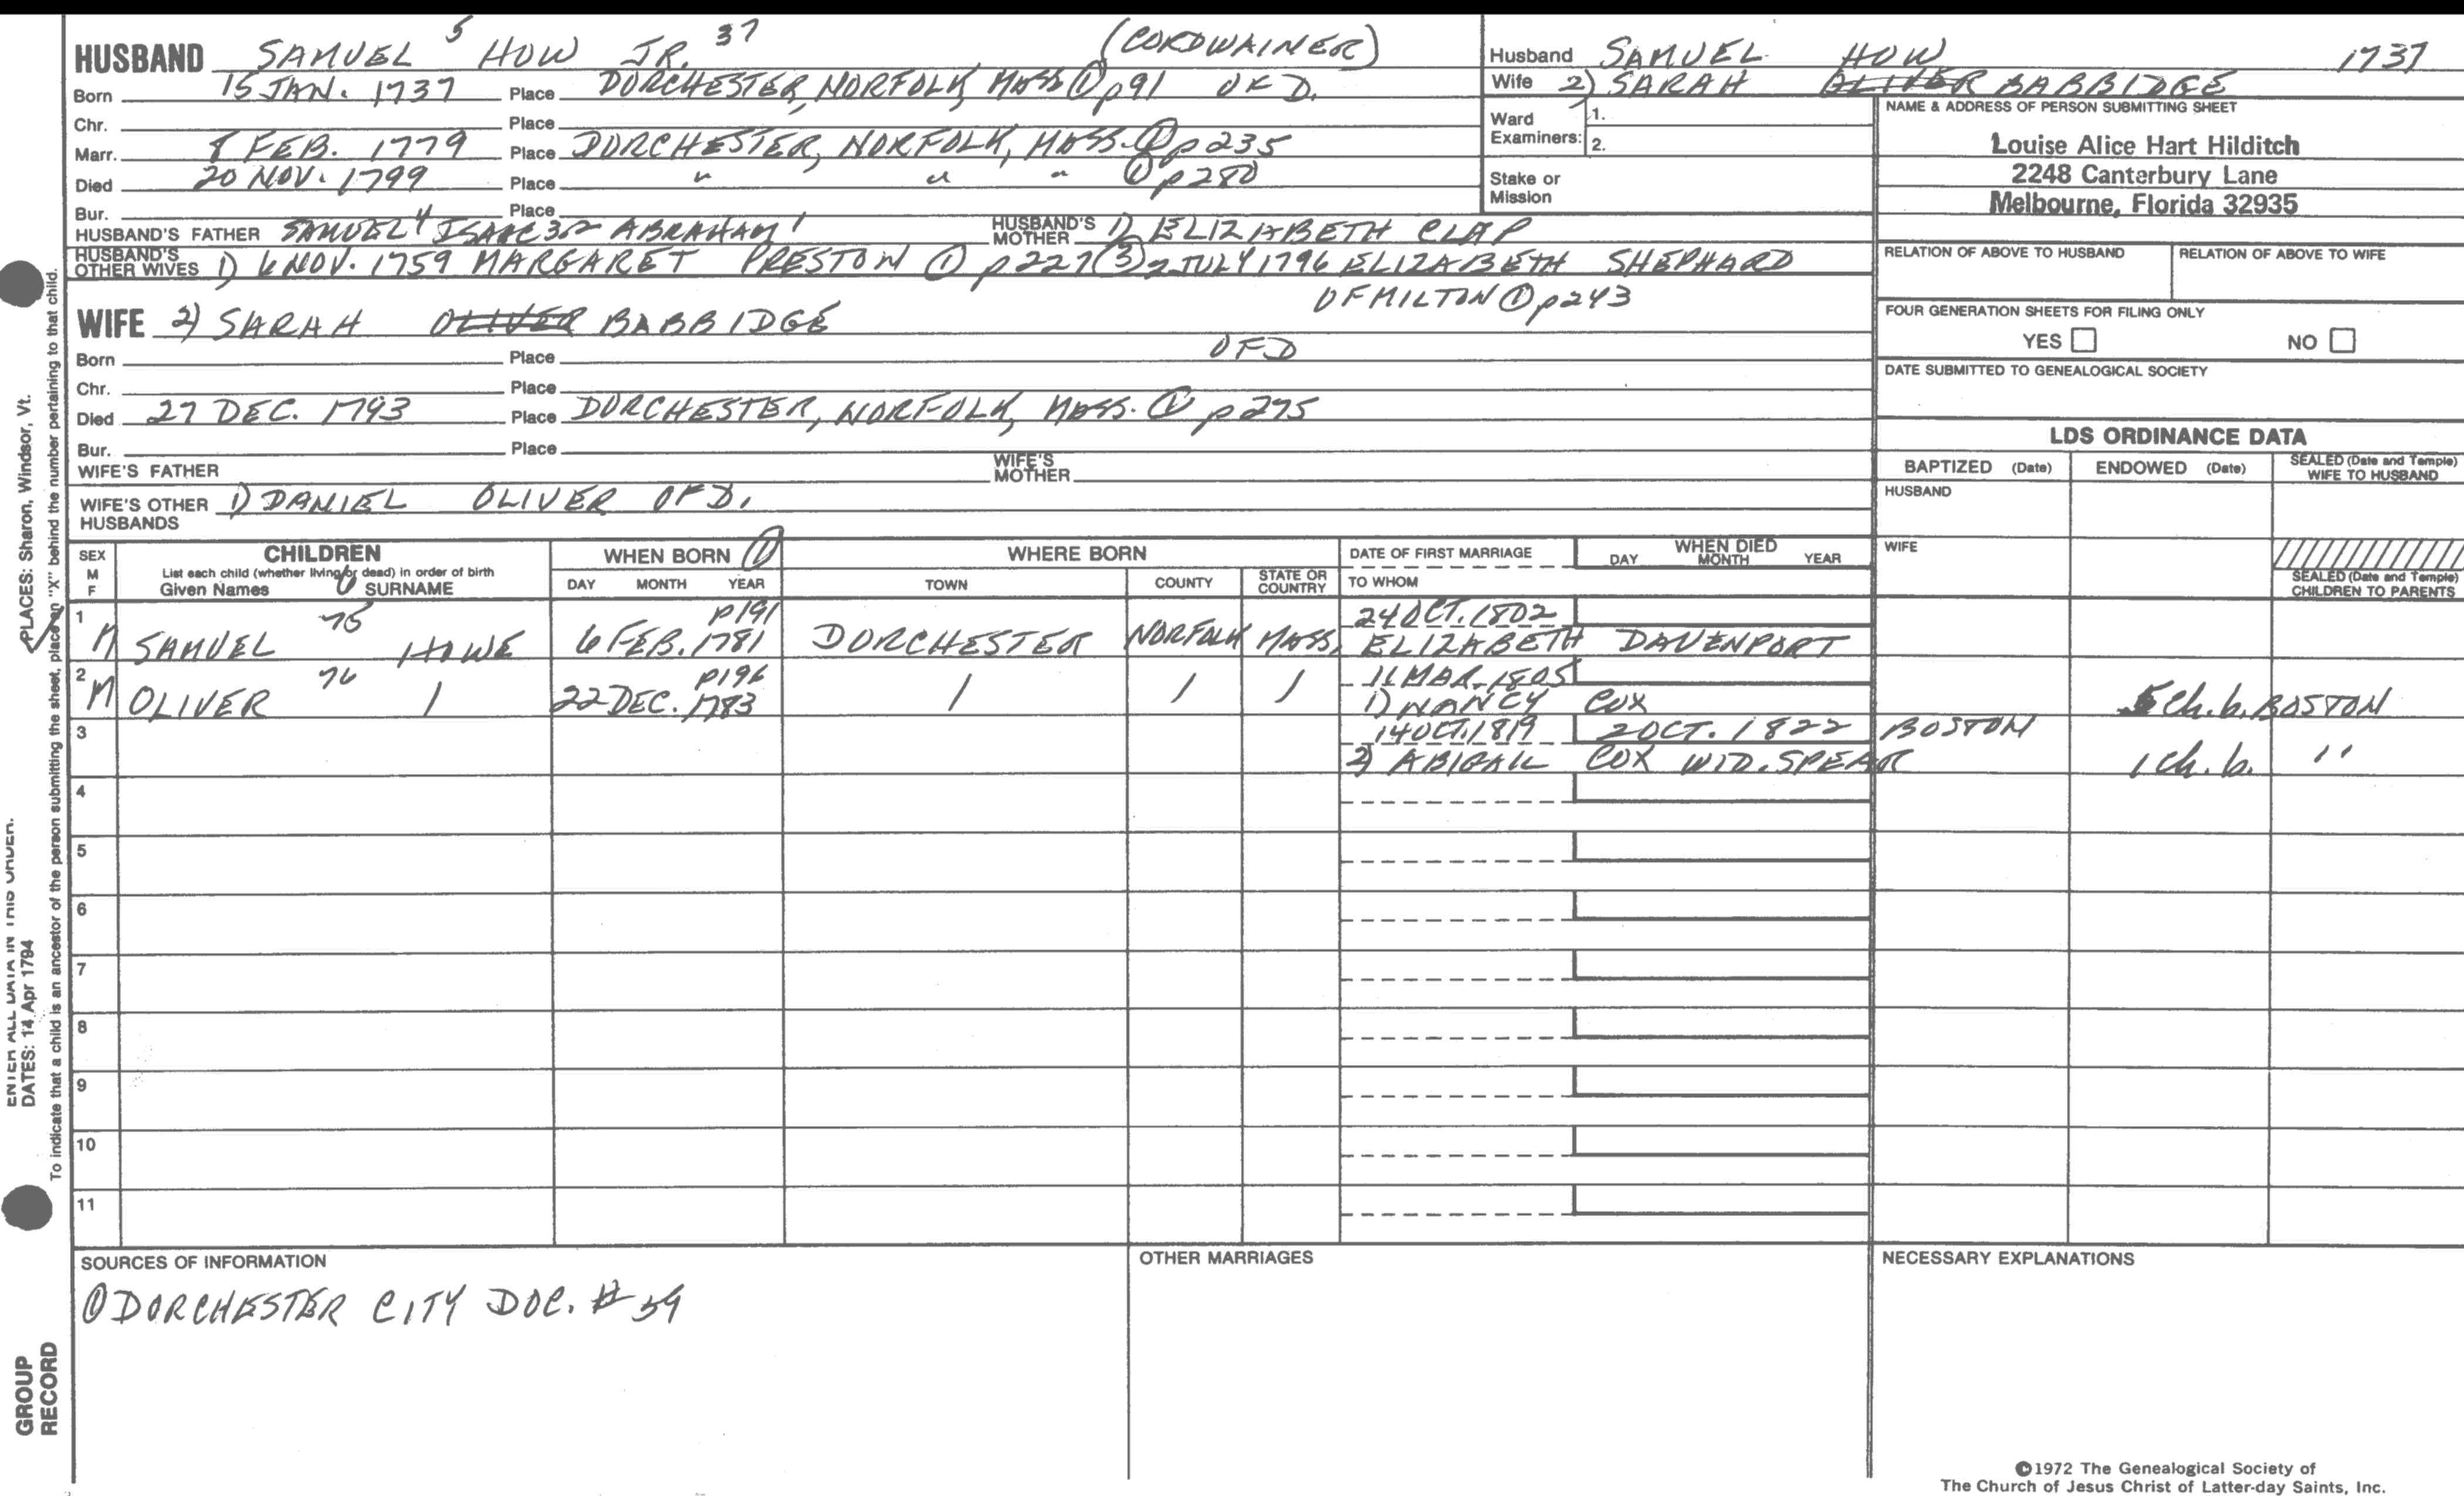 HUSBAND SAMUEL 5 HOW JR. 37 (CORDWAINER)
Born 15 JAN. 1737 Place DORCHESTER, NORFOLK, MASS ① p91 OF D.
Chr. Place
Marr. 8 FEB. 1779 Place DORCHESTER, NORFOLK, MASS. ① p235
Died 20 NOV. 1799 Place " " " ① p280
Bur. Place
HUSBAND'S FATHER SAMUEL 4 ISAAC 3 2 ABRAHAM 1 HUSBAND'S MOTHER 1) ELIZABETH CLAP
HUSBAND'S OTHER WIVES 1) 6 NOV. 1759 MARGARET PRESTON ① p227 (3) 2 JULY 1796 ELIZABETH SHEPHARD
OF MILTON ① p243
WIFE 2) SARAH OLIVER BABBIDGE
Born Place OF D
Chr. Place
Died 27 DEC. 1793 Place DORCHESTER, NORFOLK, MASS. ① p275
Bur. Place
WIFE'S FATHER WIFE'S MOTHER
WIFE'S OTHER HUSBANDS 1) DANIEL OLIVER OF D.
Husband SAMUEL HOW 1737
Wife 2) SARAH OLIVER BABBIDGE
Ward Examiners: 1.
2.
Stake or Mission
NAME & ADDRESS OF PERSON SUBMITTING SHEET
Louise Alice Hart Hilditch
2248 Canterbury Lane
Melbourne, Florida 32935
RELATION OF ABOVE TO HUSBAND RELATION OF ABOVE TO WIFE
FOUR GENERATION SHEETS FOR FILING ONLY
YES NO
DATE SUBMITTED TO GENEALOGICAL SOCIETY
LDS ORDINANCE DATA
BAPTIZED (Date) ENDOWED (Date) SEALED (Date and Temple) WIFE TO HUSBAND
HUSBAND
WIFE
SEALED (Date and Temple) CHILDREN TO PARENTS
SEX M F CHILDREN WHEN BORN ① WHERE BORN DATE OF FIRST MARRIAGE WHEN DIED
List each child (whether living or dead) in order of birth
Given Names SURNAME DAY MONTH YEAR TOWN COUNTY STATE OR COUNTRY TO WHOM DAY MONTH YEAR
1 75 p191 24 OCT. 1802
M SAMUEL HOWE 6 FEB. 1781 DORCHESTER NORFOLK MASS. ELIZABETH DAVENPORT
2 76 p196 11 MAR. 1805
M OLIVER / 22 DEC. 1783 / / / 1) NANCY COX 5 ch. b. BOSTON
3 14 OCT. 1819 2 OCT. 1822 BOSTON
2) ABIGAIL COX WID. SPEAR 1 ch. b. "
4
5
6
7
8
9
10
11
SOURCES OF INFORMATION
① DORCHESTER CITY DOC. # 59
OTHER MARRIAGES
NECESSARY EXPLANATIONS
©1972 The Genealogical Society of
The Church of Jesus Christ of Latter-day Saints, Inc.
PLACES: Sharon, Windsor, Vt.
To indicate that a child is an ancestor of the person submitting the sheet, place an "X" behind the number pertaining to that child.
ENTER ALL DATA IN THIS ORDER.
DATES: 14 Apr 1794
GROUP
RECORD